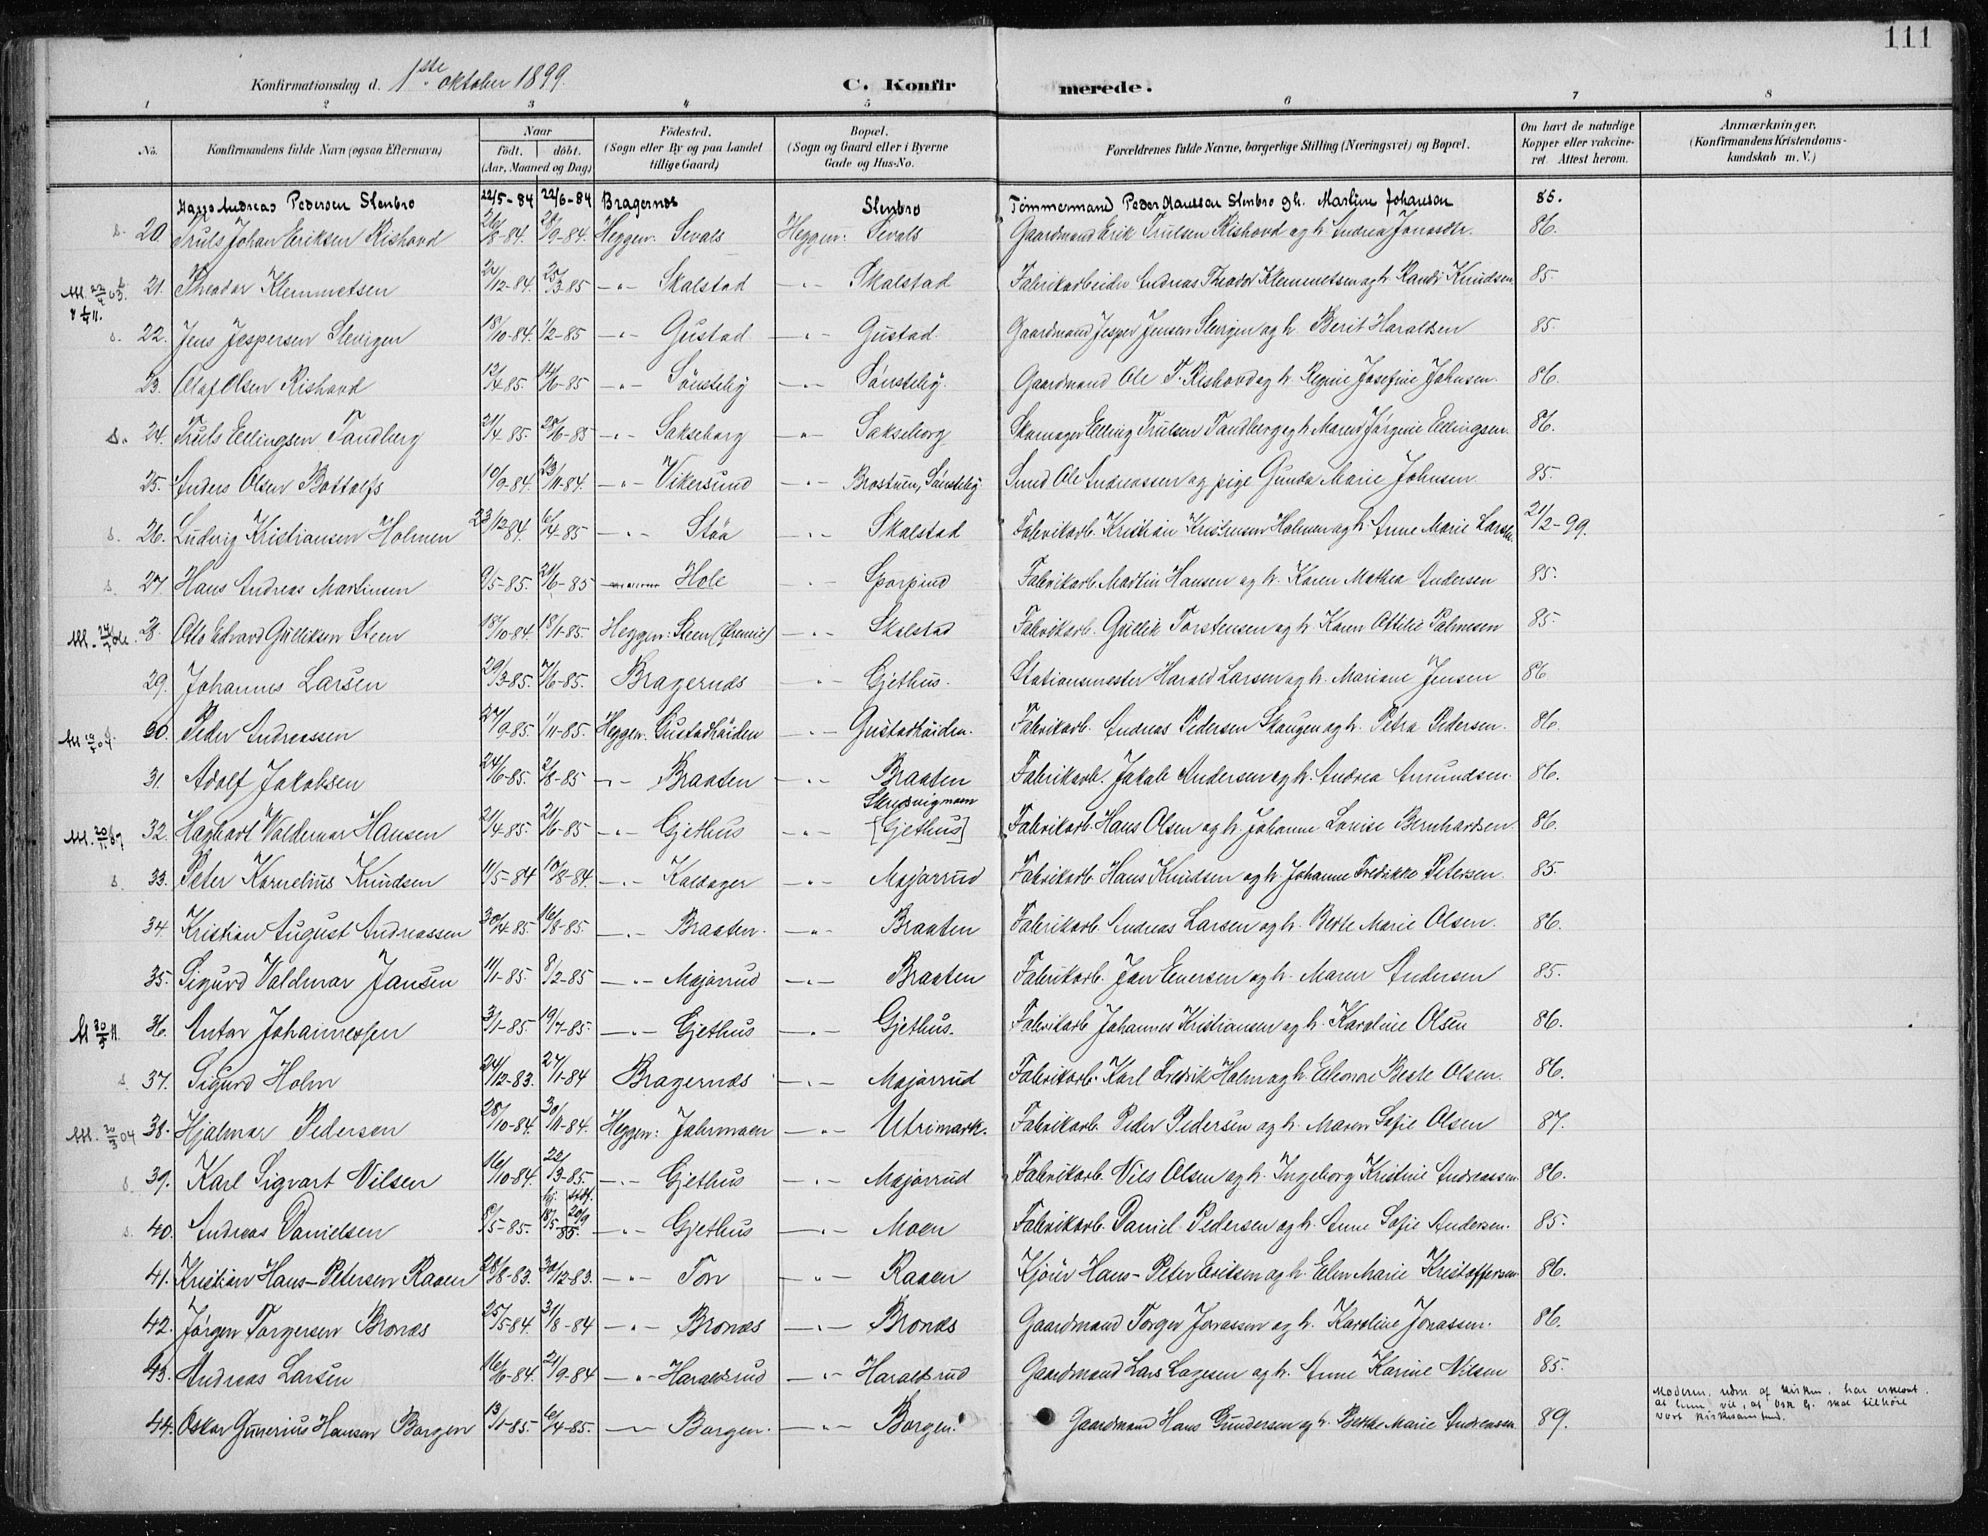 111
Konfirmationsdag d. 1ste oktober 1899. C. Konfirmerede.
1 2 3 4 5 6 7 8
No. Konfirmandens fulde Navn (ogsaa Efternavn) Naar født. døbt. (Aar, Maaned og Dag) Fødested. (Sogn eller By og paa Landet tillige Gaard) Bopæl. (Sogn og Gaard eller i Byerne Gade og Hus-No. Forældrenes fulde Navne, borgerlige Stilling (Næringsvei) og Bopæl. Om havt de naturlige Kopper eller vakcineret. Attest herom. Anmærkninger. (Konfirmandens Kristendomskundskab m. V.)
Hans Andreas Pedersen Stenbro 22/5-84 22/6-84 Bragernes Stenbro Tømmermand Peder Hanssen Stenbro og h. Martine Johansen 85.
20. Truls Johan Eriksen Rishovd 26/8-84. 28/9-84. Heggen: Sevals Heggen: Sevals Gaardmand Erik Trulsen Rishovd og h. Andrea Jonasdtr. 86.
21. Theodor Klemmetsen 22/12-84 25/3-85 -"- Skalstad -"- Skalstad Fabrikarbeider Andreas Theodor Klemmetsen og h. Randi Knudsen 85.
22. Jens Jespersen Stevigen 18/10-84. 1/2-85 -"- Gustad -"- Gustad Gaardmand Jesper Jensen Stevigen og h. Berit Haraldsen 85.
23. Olaf Olsen Rishovd 12/4-85. 14/6-85 -"- Sønsteby -"- Sønsteby. Gaardmand Ole T. Rishovd og h. Regine Josefine Johnsen. 86.
24. Truls Ellingsen Tandberg 21/4-85. 28/6-85 -"- Sakseborg -"- Sakseborg Skomager Elling Trulsen Tandberg og h. Maren Jørgine Ellingsen. 86.
25. Anders Olsen Bottolfs 10/9-84. 23/11-84. -"- Vikersund -"- Brostuen, Sønsteby Smed Ole Andreassen og pige Gunda Marie Johnsen. 85.
26. Ludvig Kristiansen Holmen 23/12-84. 6/4-85 -"- Støa -"- Skalstad Fabrikarb. Kristian Kristensen Holmen og h. Anne Marie Larsen. 21/2-99.
27. Hans Andreas Martinsen 9/5-85. 21/6-85 Hole -"- Sporpind Fabrikarb. Martin Hansen og h. Karen Mathea Andersen 85.
28. Otto Edvard Gulliksen Steen 18/10-84 18/1-85. Heggen: Steen -"- Skalstad Fabrikarb. Gullik Torstensen og h. Karen Ottilie Palmesen 85.
29. Johannes Larsen 29/3-85. 7/6-85. Bragernæs -"- Gjethus. Stationsmester Harald Larsen og h. Mariane Jensen 86
30. Peder Andreassen 27/9-85. 1/11-85. Heggen: Gustadhøiden -"- Gustadhøiden. Fabrikarb. Andreas Pedersen Skaugen og h. Petra Pedersen. 86.
31. Adolf Jakobsen 24/6-85. 2/8-85 -"- Braaten -"- Braaten Fabrikarb. Jakob Andersen og h. Andrea Amundsen. 86.
Skredsvigmoen
32. Haghart Valdemar Hansen 21/4-85. 21/6-85 -"- Gjethus -"- [Gjethus] Fabrikarb. Hans Olsen og h. Johanne Lovise Bernhardsen. 86.
33. Peter Kornelius Knudsen 11/5-84 10/8-84. -"- Kaldager -"- Majorrud Fabrikarb. Hans Knudsen og h. Johanne Fredrikke Petersen. 85.
34. Kristian August Andreassen 30/4-85. 16/8-85. -"- Braaten. -"- Braaten Fabrikarb. Andreas Larsen og h. Berte Marie Olsen. 86.
35. Sigurd Valdemar Jansen 11/1-85. 8/2-85 -"- Majorrud -"- Braaten Fabrikarb. Jan Evensen og h. Maren Andersen 85.
36. Anton Johannessen 3/1-85. 19/7-85. -"- Gjethus -"- Gjethus. Fabrikarb. Johannes Kristiansen og h. Karoline Olsen 86.
37. Sigurd Holm 24/12-83. 27/1-84 Bragernæs -"- Majorrud Fabrikarb. Karl Fredrik Holm og h. Eleonore Berte Olsen. 86.
38. Hjalmar Pedersen 28/10-84. 30/11-84. Heggen: Jahrmoen -"- Utrimark. Fabrikarb. Peder Pedersen og h. Maren Sofie Olsen 87.
39. Karl Sigvart Nilsen 16/10-84. 22/3-85. -"- Gjethus -"- Majorrud Fabrikarb. Nils Olsen og h. Ingeborg Kristine Andreassen. 86.
40. Andreas Danielsen 8/5-85. 18/5 20/9 85. -"- Gjethus -"- Moen Fabrikarb. Daniel Pedersen og h. Anne Sofie Andersen. 85.
41. Kristian Hans-Petersen Raaen 28/8-83. 30/12-83. -"- Ton -"- Raaen Kjører Hans-Peter Eriksen og h. Elen Marie Kristoffersen. 86.
42. Jørgen Torgersen Bronæs 25/5-84. 31/8-84 -"- Bronæs -"- Bronæs Gaardmand Torger Jonassen og h. Karoline Jonassen. 86.
43. Andreas Larsen 16/6-84. 21/9-84 -"- Haraldsrud -"- Haraldsrud Gaardmand Lars Lagesen og h. Anne Karine Nilsen 85.
44. Oskar Gunerius Hansen Borgen 13/1-85. 6/4-85. -"- Borgen. -"- Borgen. Gaardmand Hans Gundersen og h. Berthe Marie Andreasen. 89. Moderen, udm. af kirken, har erklæret